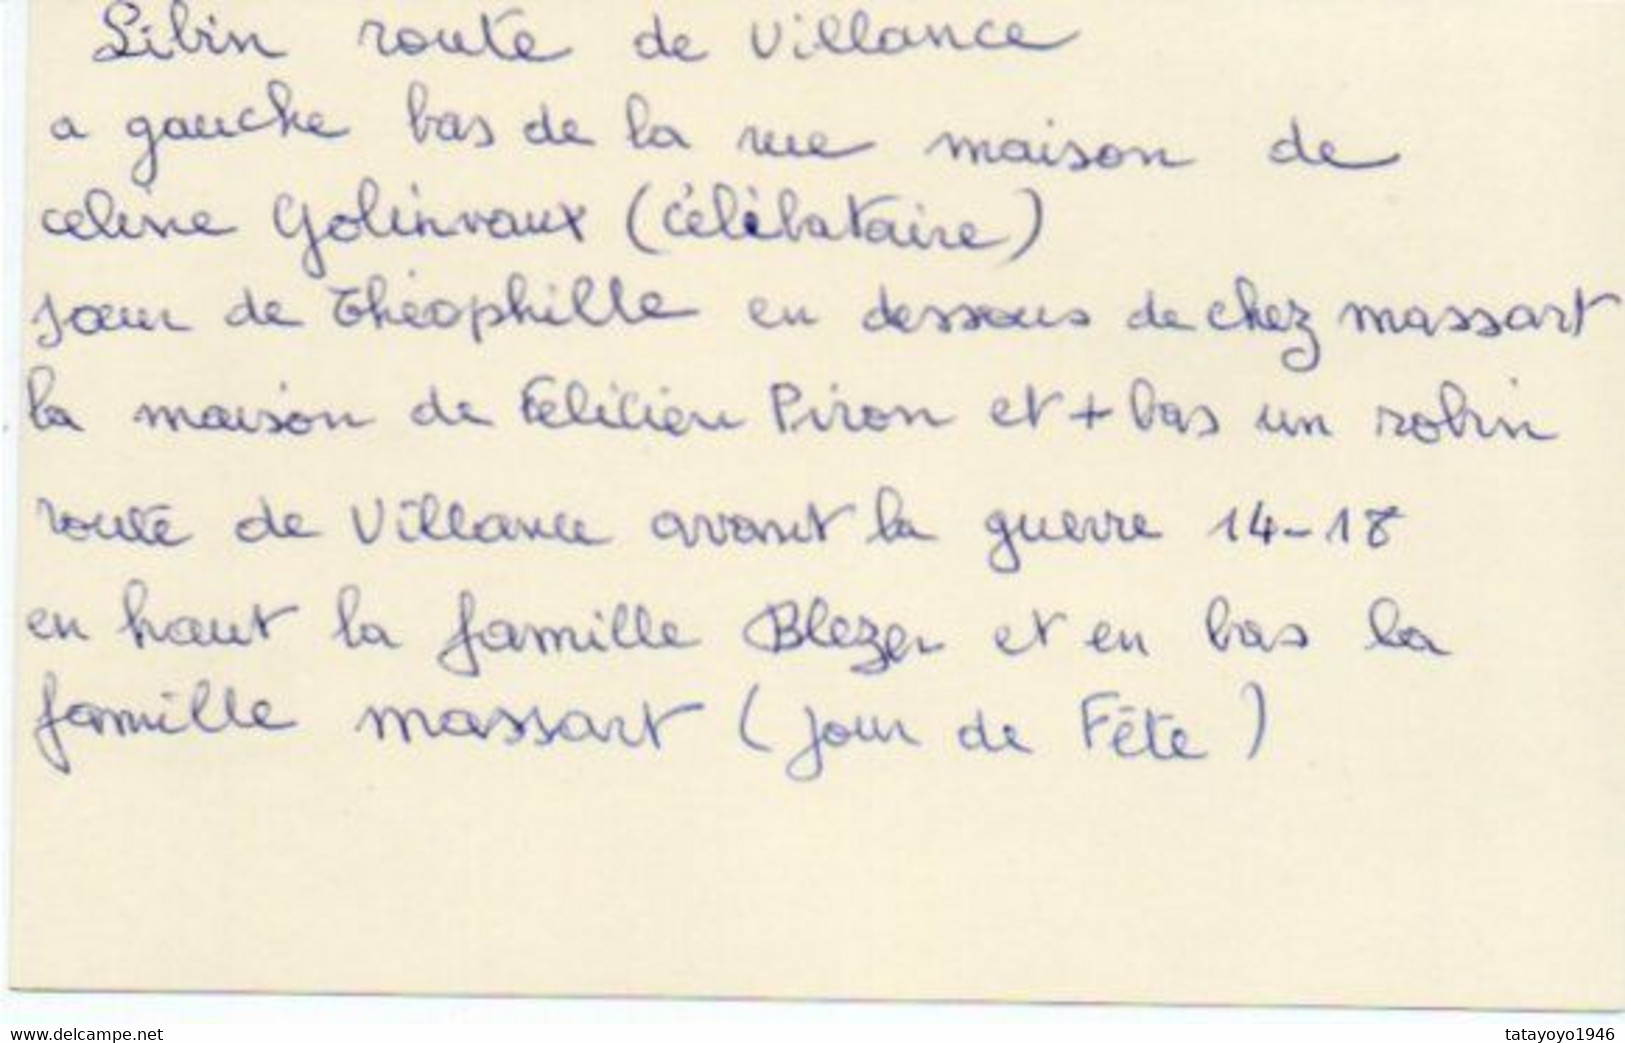 Libin route de Villance
a gauche bas de la rue maison de
celine Golinvaux (célibataire)
soeur de Théophille en dessous de chez massart
la maison de Felicien Piron et + bas un robin
route de Villance avant la guerre 14-18
en haut la famille Blezer et en bas la
famille massart (jour de Fête)
www.delcampe.net
tatayoyo1946